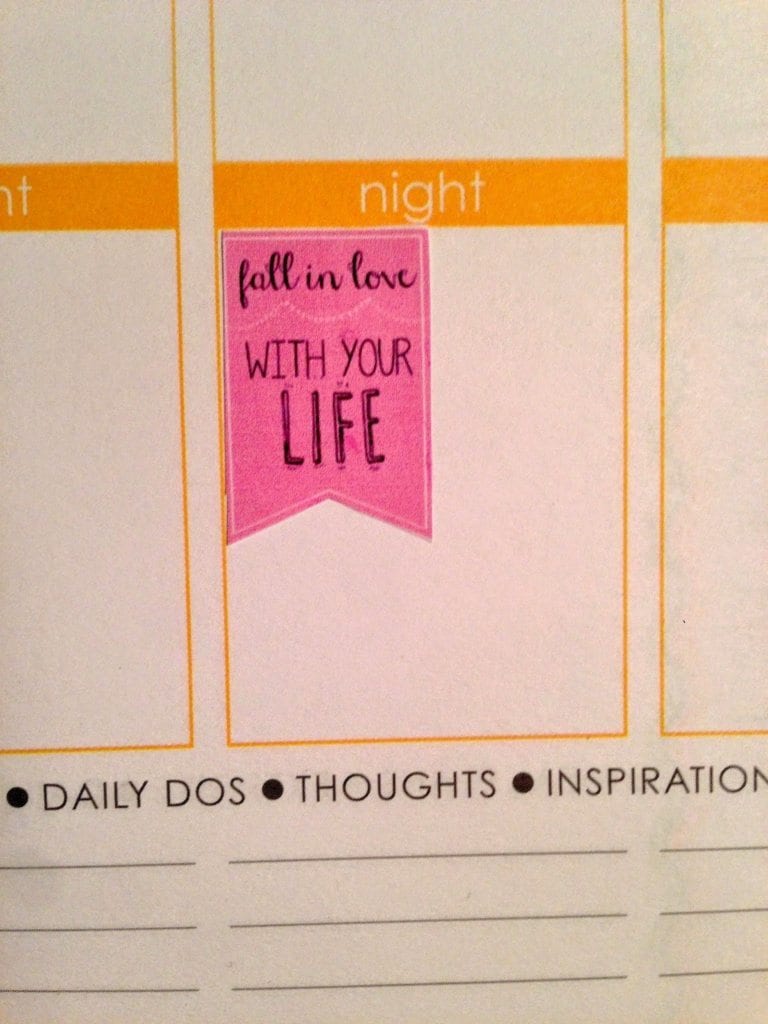 ht night
fall in love
WITH YOUR
LIFE
● DAILY DOS ● THOUGHTS ● INSPIRATION